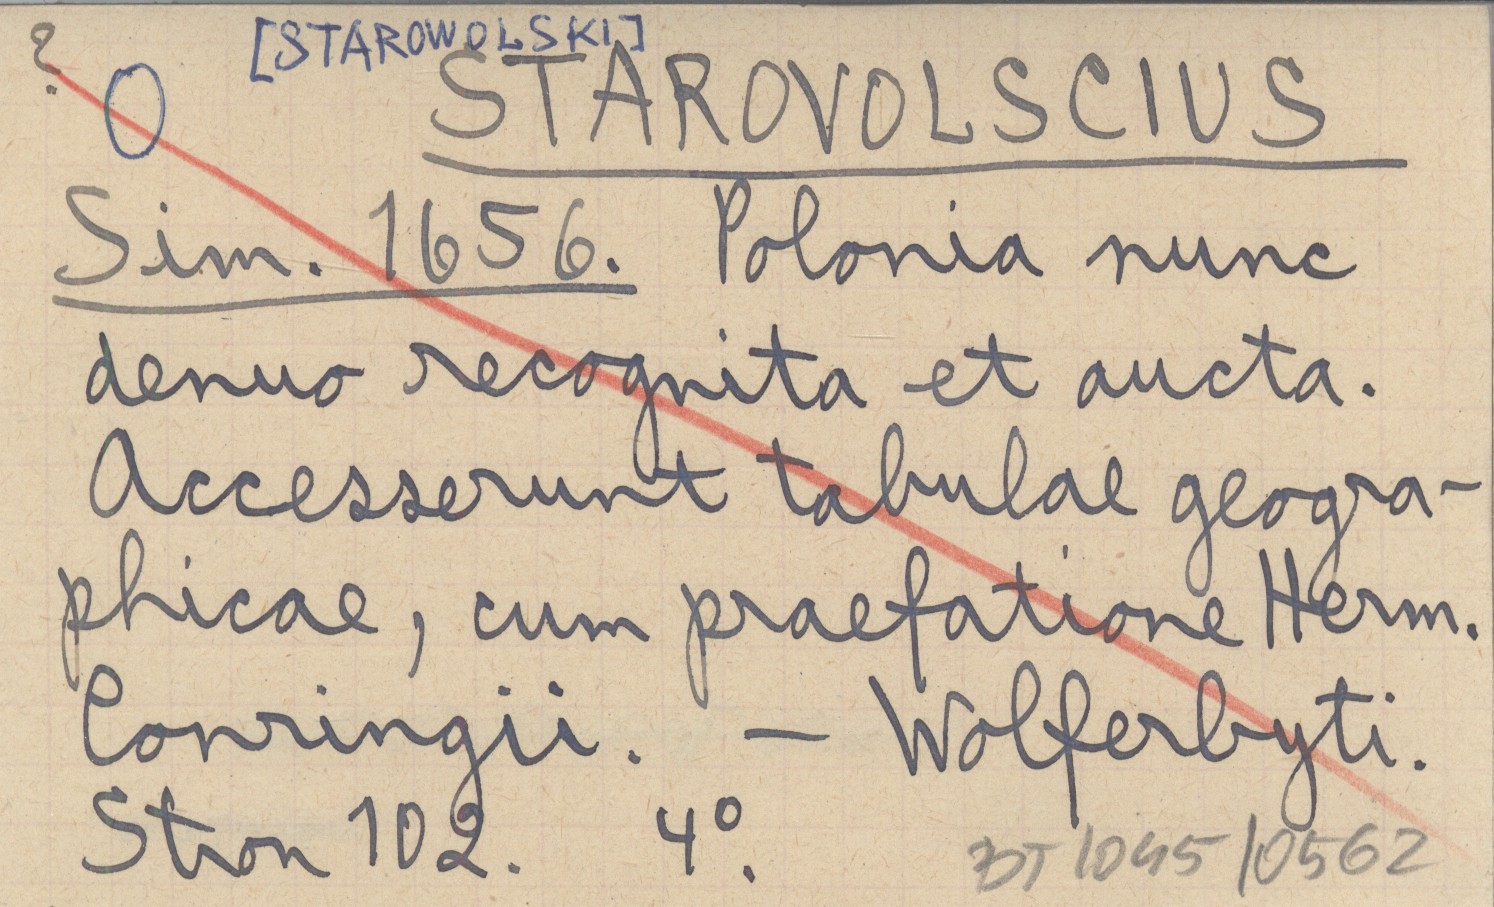 ?
O
[STAROWOLSKI]
STAROVOLSCIUS
Sim. 1656. Polonia nunc
denuo recognita et aucta.
Accesserunt tabulae geogra-
phicae, cum praefatione Herm.
Conringii. — Wolferbyti.
Stron 102. 4°.
BT 1045/0562